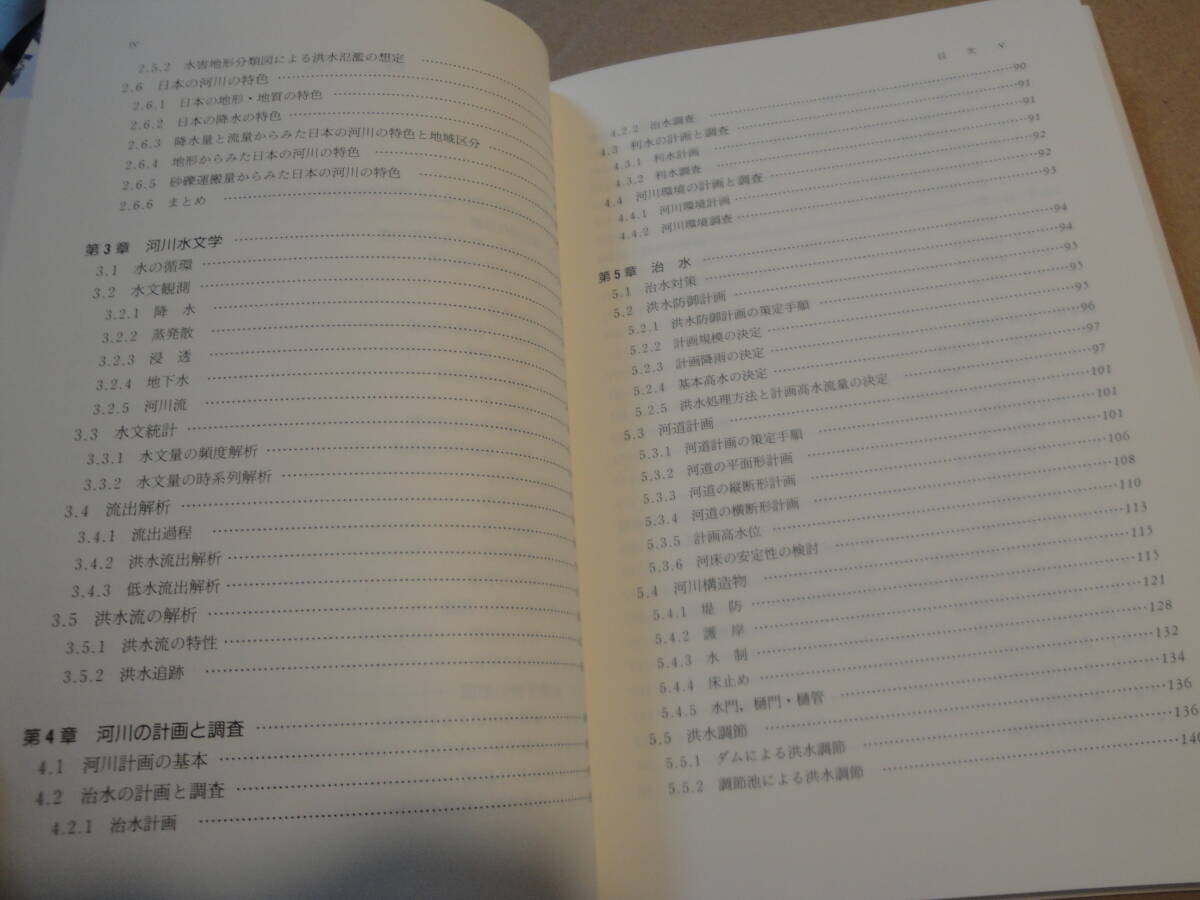 iv
2.5.2 水害地形分類図による洪水氾濫の想定 ……
2.6 日本の河川の特色 ……
2.6.1 日本の地形・地質の特色 ……
2.6.2 日本の降水の特色 ……
2.6.3 降水量と流量からみた日本の河川の特色と地域区分 ……
2.6.4 地形からみた日本の河川の特色 ……
2.6.5 砂礫運搬量からみた日本の河川の特色 ……
2.6.6 まとめ ……
第3章 河川水文学 ……
3.1 水の循環 ……
3.2 水文観測 ……
3.2.1 降 水 ……
3.2.2 蒸発散 ……
3.2.3 浸 透 ……
3.2.4 地下水 ……
3.2.5 河川流 ……
3.3 水文統計 ……
3.3.1 水文量の頻度解析 ……
3.3.2 水文量の時系列解析 ……
3.4 流出解析 ……
3.4.1 流出過程 ……
3.4.2 洪水流出解析 ……
3.4.3 低水流出解析 ……
3.5 洪水流の解析 ……
3.5.1 洪水流の特性 ……
3.5.2 洪水追跡 ……
第4章 河川の計画と調査 ……
4.1 河川計画の基本 ……
4.2 治水の計画と調査 ……
4.2.1 治水計画 ……
目 次 v
4.2.2 治水調査 ……90
4.3 利水の計画と調査 ……91
4.3.1 利水計画 ……91
4.3.2 利水調査 ……91
4.4 河川環境の計画と調査 ……92
4.4.1 河川環境計画 ……92
4.4.2 河川環境調査 ……93
第5章 治 水 ……94
5.1 治水対策 ……94
5.2 洪水防御計画 ……95
5.2.1 洪水防御計画の策定手順 ……95
5.2.2 計画規模の決定 ……95
5.2.3 計画降雨の決定 ……96
5.2.4 基本高水の決定 ……97
5.2.5 洪水処理方法と計画高水流量の決定 ……97
5.3 河道計画 ……101
5.3.1 河道計画の策定手順 ……101
5.3.2 河道の平面形計画 ……101
5.3.3 河道の縦断形計画 ……106
5.3.4 河道の横断形計画 ……108
5.3.5 計画高水位 ……110
5.3.6 河床の安定性の検討 ……113
5.4 河川構造物 ……113
5.4.1 堤 防 ……115
5.4.2 護 岸 ……121
5.4.3 水 制 ……128
5.4.4 床止め ……132
5.4.5 水門，樋門・樋管 ……134
5.5 洪水調節 ……136
5.5.1 ダムによる洪水調節 ……136
5.5.2 調節池による洪水調節 ……140